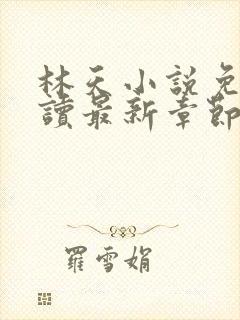 林天小說免
讀最新章節
羅雪娟